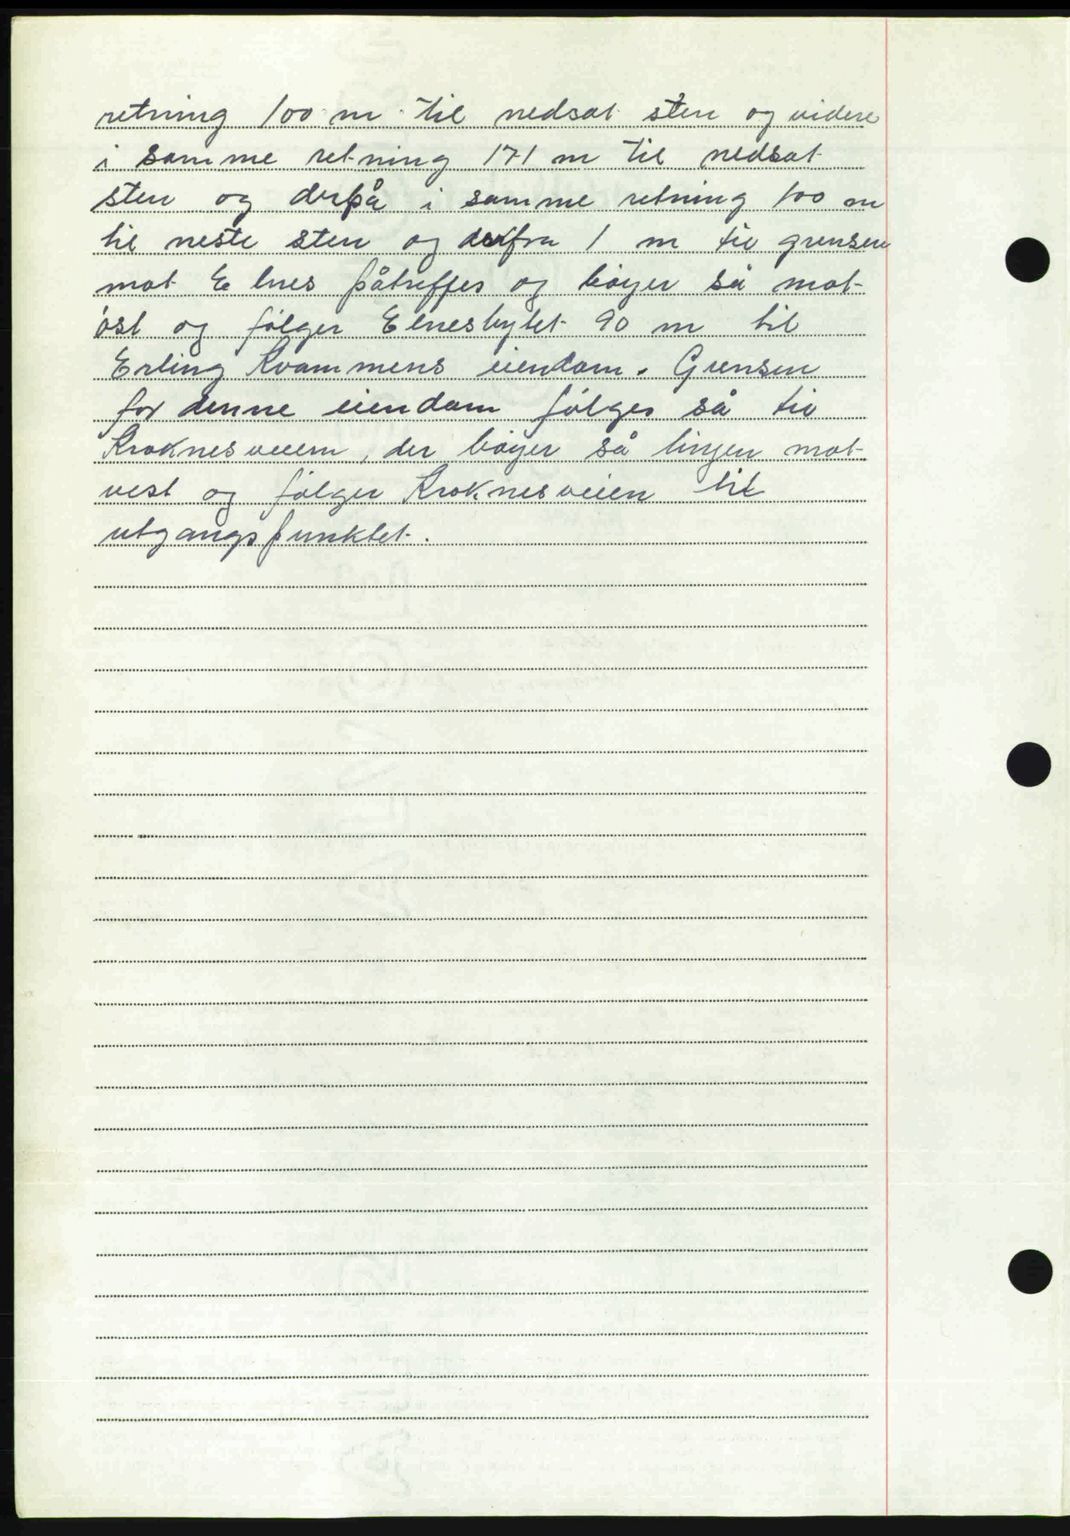 retning 100 m til nedsat sten og videre
i samme retning 171 m til nedsat
sten og derpå i samme retning 100 m
til neste sten og derfra 1 m til grensen
mot Elnes påtreffes og bøyer så mot
øst og følger Elnesbytet 90 m til
Erling Kvammens eiendom. Grensen
for denne eiendom følges så til
Kroknesveiem, der bøyer så linjen mot
vest og følger Kroknesveien til
utgangspunktet.